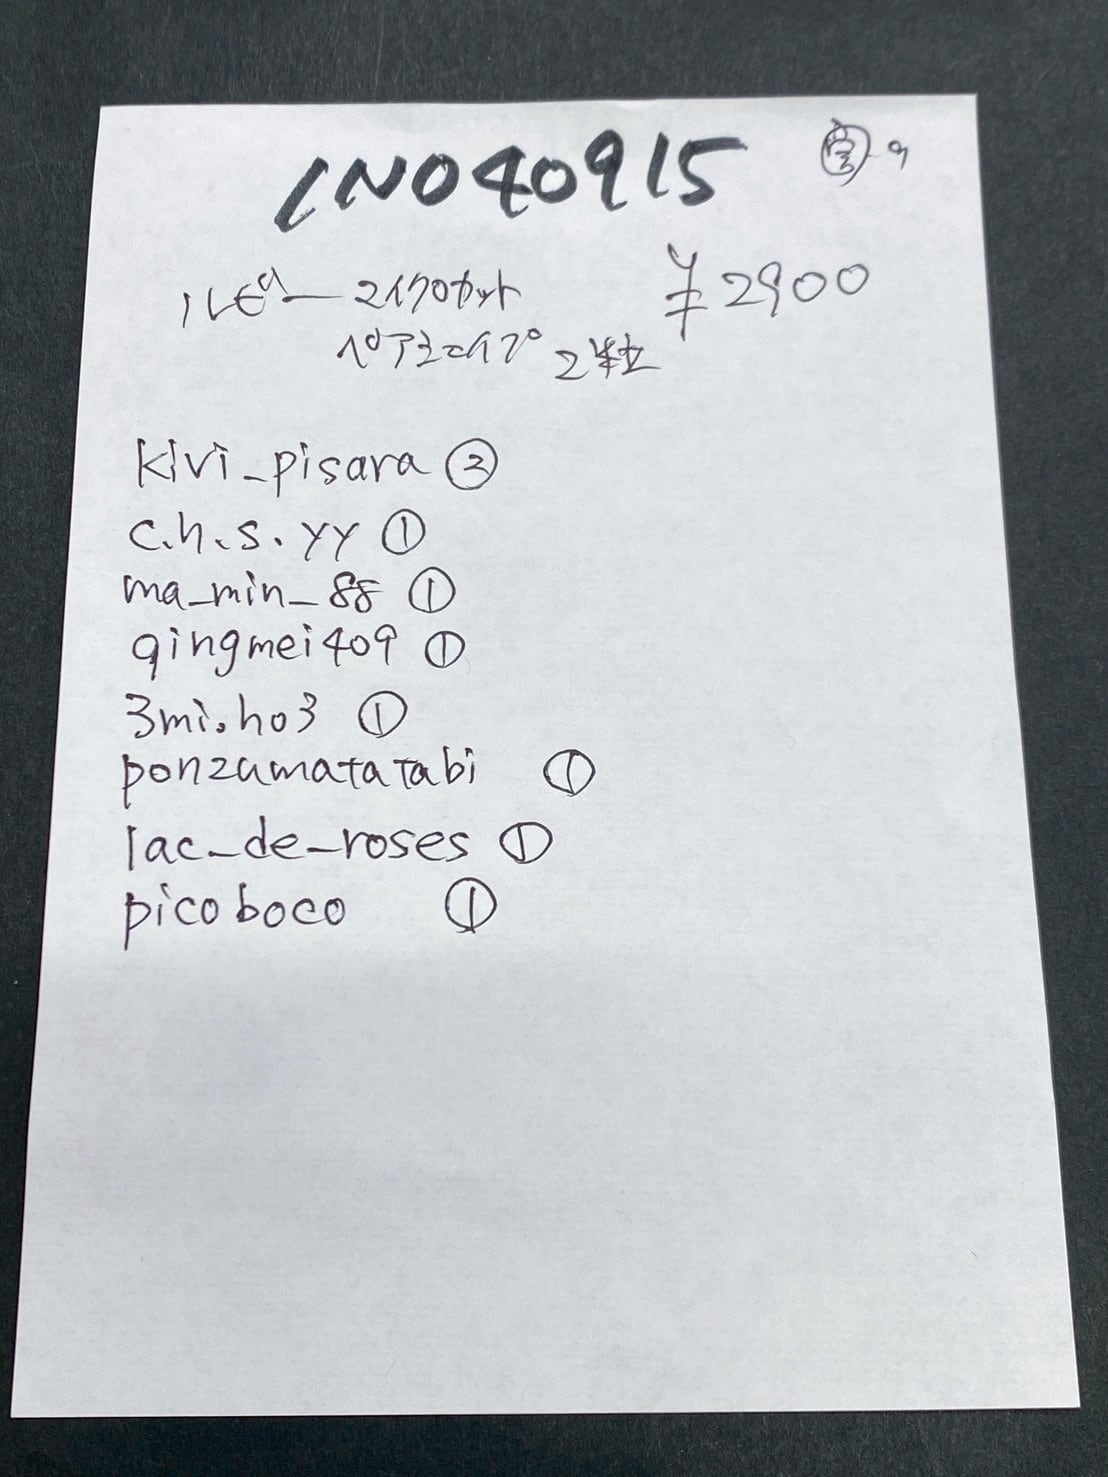 INO40915
ルビー マイクロカット ¥2900
ペアシェイプ 2粒
kivi_pisara ②
c.h.s.yy ①
ma_min_88 ①
qingmei409 ①
3mi.ho3 ①
ponzamatatabi ①
lac_de_roses ①
picoboco ①